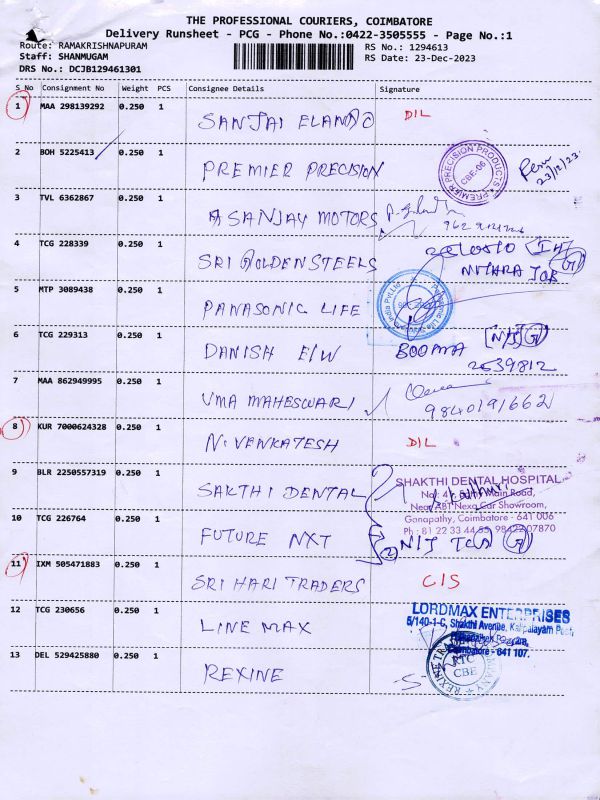 THE PROFESSIONAL COURIERS, COIMBATORE
Delivery Runsheet - PCG - Phone No.:0422-3505555 - Page No.:1
Route: RAMAKRISHNAPURAM RS No.: 1294613
Staff: SHANMUGAM RS Date: 23-Dec-2023
DRS No.: DCJB129461301
S No Consignment No Weight PCS Consignee Details Signature
1 MAA 298139292 0.250 1 SANJAI ELANGO DIL
2 BOH 5225413 0.250 1 PREMIER PRECISION
PREMIER PRECISION PRODUCTS
CBE-06
23/12/23
3 TVL 6362867 0.250 1 SANJAY MOTORS
4 TCG 228339 0.250 1 SRI GOLDEN STEELS
MITHRA JOB
5 MTP 3089438 0.250 1 PANASONIC LIFE
6 TCG 229313 0.250 1 DANISH E/W BOOMA
2639812
7 MAA 862949995 0.250 1 UMA MAHESWARI
9840191662
8 KUR 7000624328 0.250 1 N. VENKATESH DIL
9 BLR 2250557319 0.250 1 SAKTHI DENTAL
SHAKTHI DENTAL HOSPITAL
Main Road,
Near ABT Nexa Car Showroom,
Ganapathy, Coimbatore - 641 006
10 TCG 226764 0.250 1 FUTURE NXT
11 IXM 505471883 0.250 1 SRI HARI TRADERS CIS
12 TCG 230656 0.250 1 LINE MAX
LORDMAX ENTERPRISES
5/140-1-C, Shakthi Avenue,
Coimbatore - 641 107.
13 DEL 529425880 0.250 1 REXINE
RTC
CBE